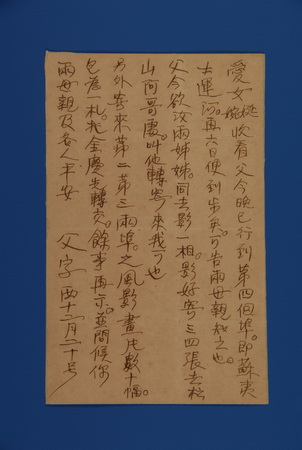 愛女桃婉收看父今晚已行到第四個埠。即蘇夷
士運河。再六日便到步矣。可告兩母親知之也。
父今欲汝兩姊妹。同去影一相。影好寄三四張去松
山阿哥處。叫他轉寄來我可也
另外寄來第二第三兩埠。之風影畫片數十幅。
包為一札。托金慶先轉交。餘事再示。並問候你
兩母親及各人平安 父字 西十二月二十号